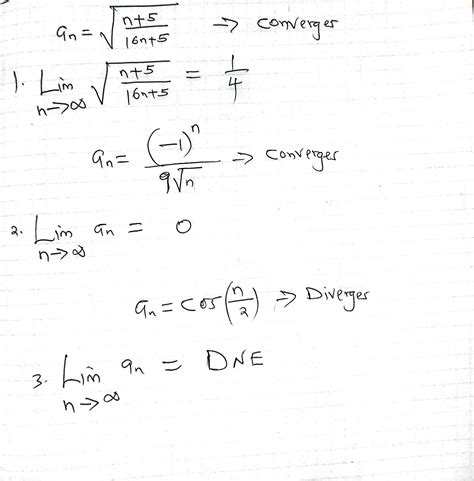 aₙ = √((n+5)/(16n+5)) → converges
1. Lim n→∞ √((n+5)/(16n+5)) = 1/4
aₙ = (-1)ⁿ/(9√n) → converges
2. Lim n→∞ aₙ = 0
aₙ = cos(n/2) → Diverges
3. Lim n→∞ aₙ = DNE